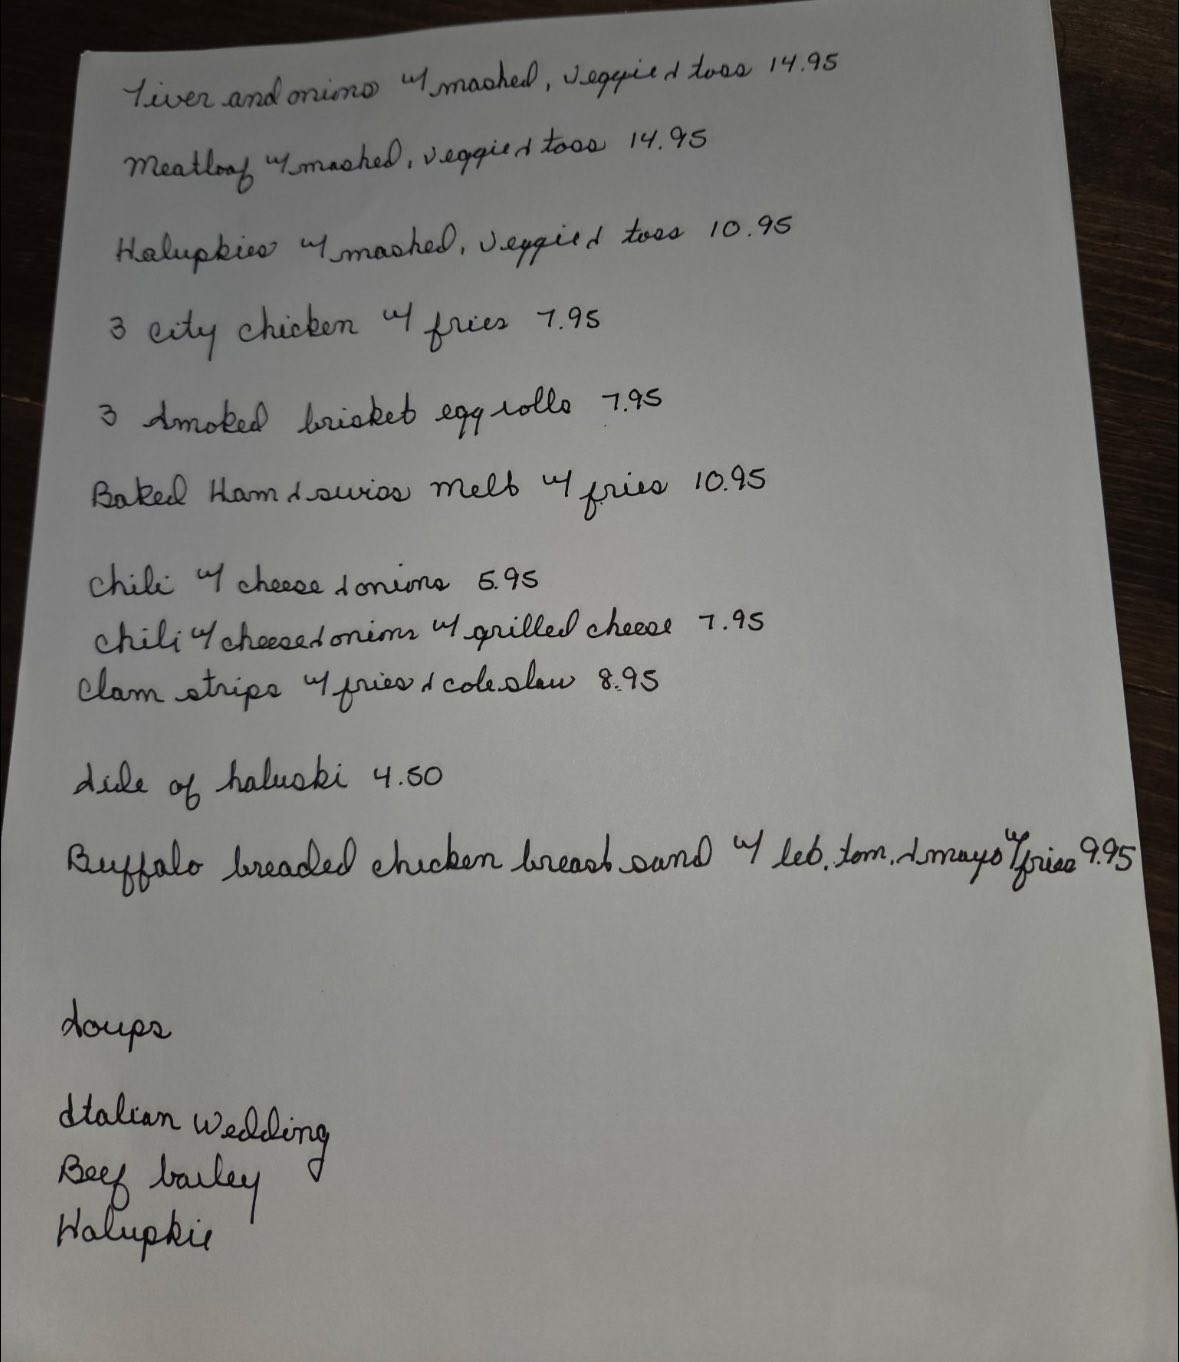 Liver and onions w/ mashed, veggie & toss 14.95
Meatloaf w/ mashed, veggie & toss 14.95
Halupkies w/ mashed, veggie & toss 10.95
3 city chicken w/ fries 7.95
3 smoked brisket egg rolls 7.95
Baked Ham & swiss melt w/ fries 10.95
chili w/ cheese & onions 5.95
chili w/ cheese & onions w/ grilled cheese 7.95
Clam strips w/ fries & coleslaw 8.95
Side of haluski 4.50
Buffalo breaded chicken breast sand w/ let. tom. & mayo w/ fries 9.95
Soups
Italian Wedding
Beef barley
Halupkie